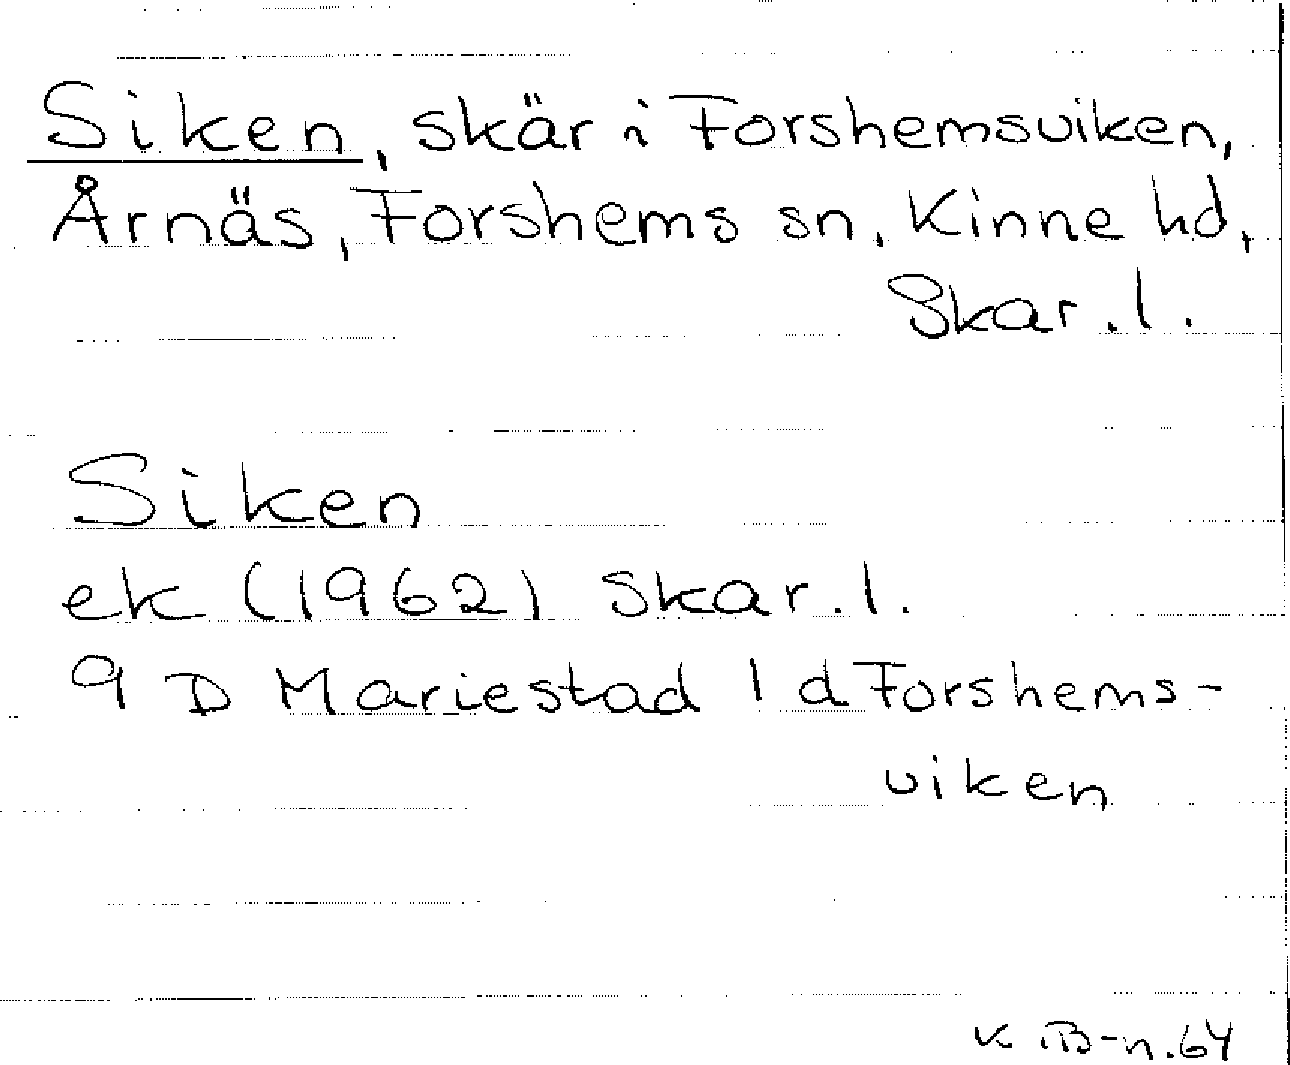 Siken, skär i Forshemsviken,
Årnäs, Forshems sn, Kinne hd,
Skar. l.
Siken
ek (1962) Skar. l.
9 D Mariestad 1 d Forshems-
viken
K iB-n. 64